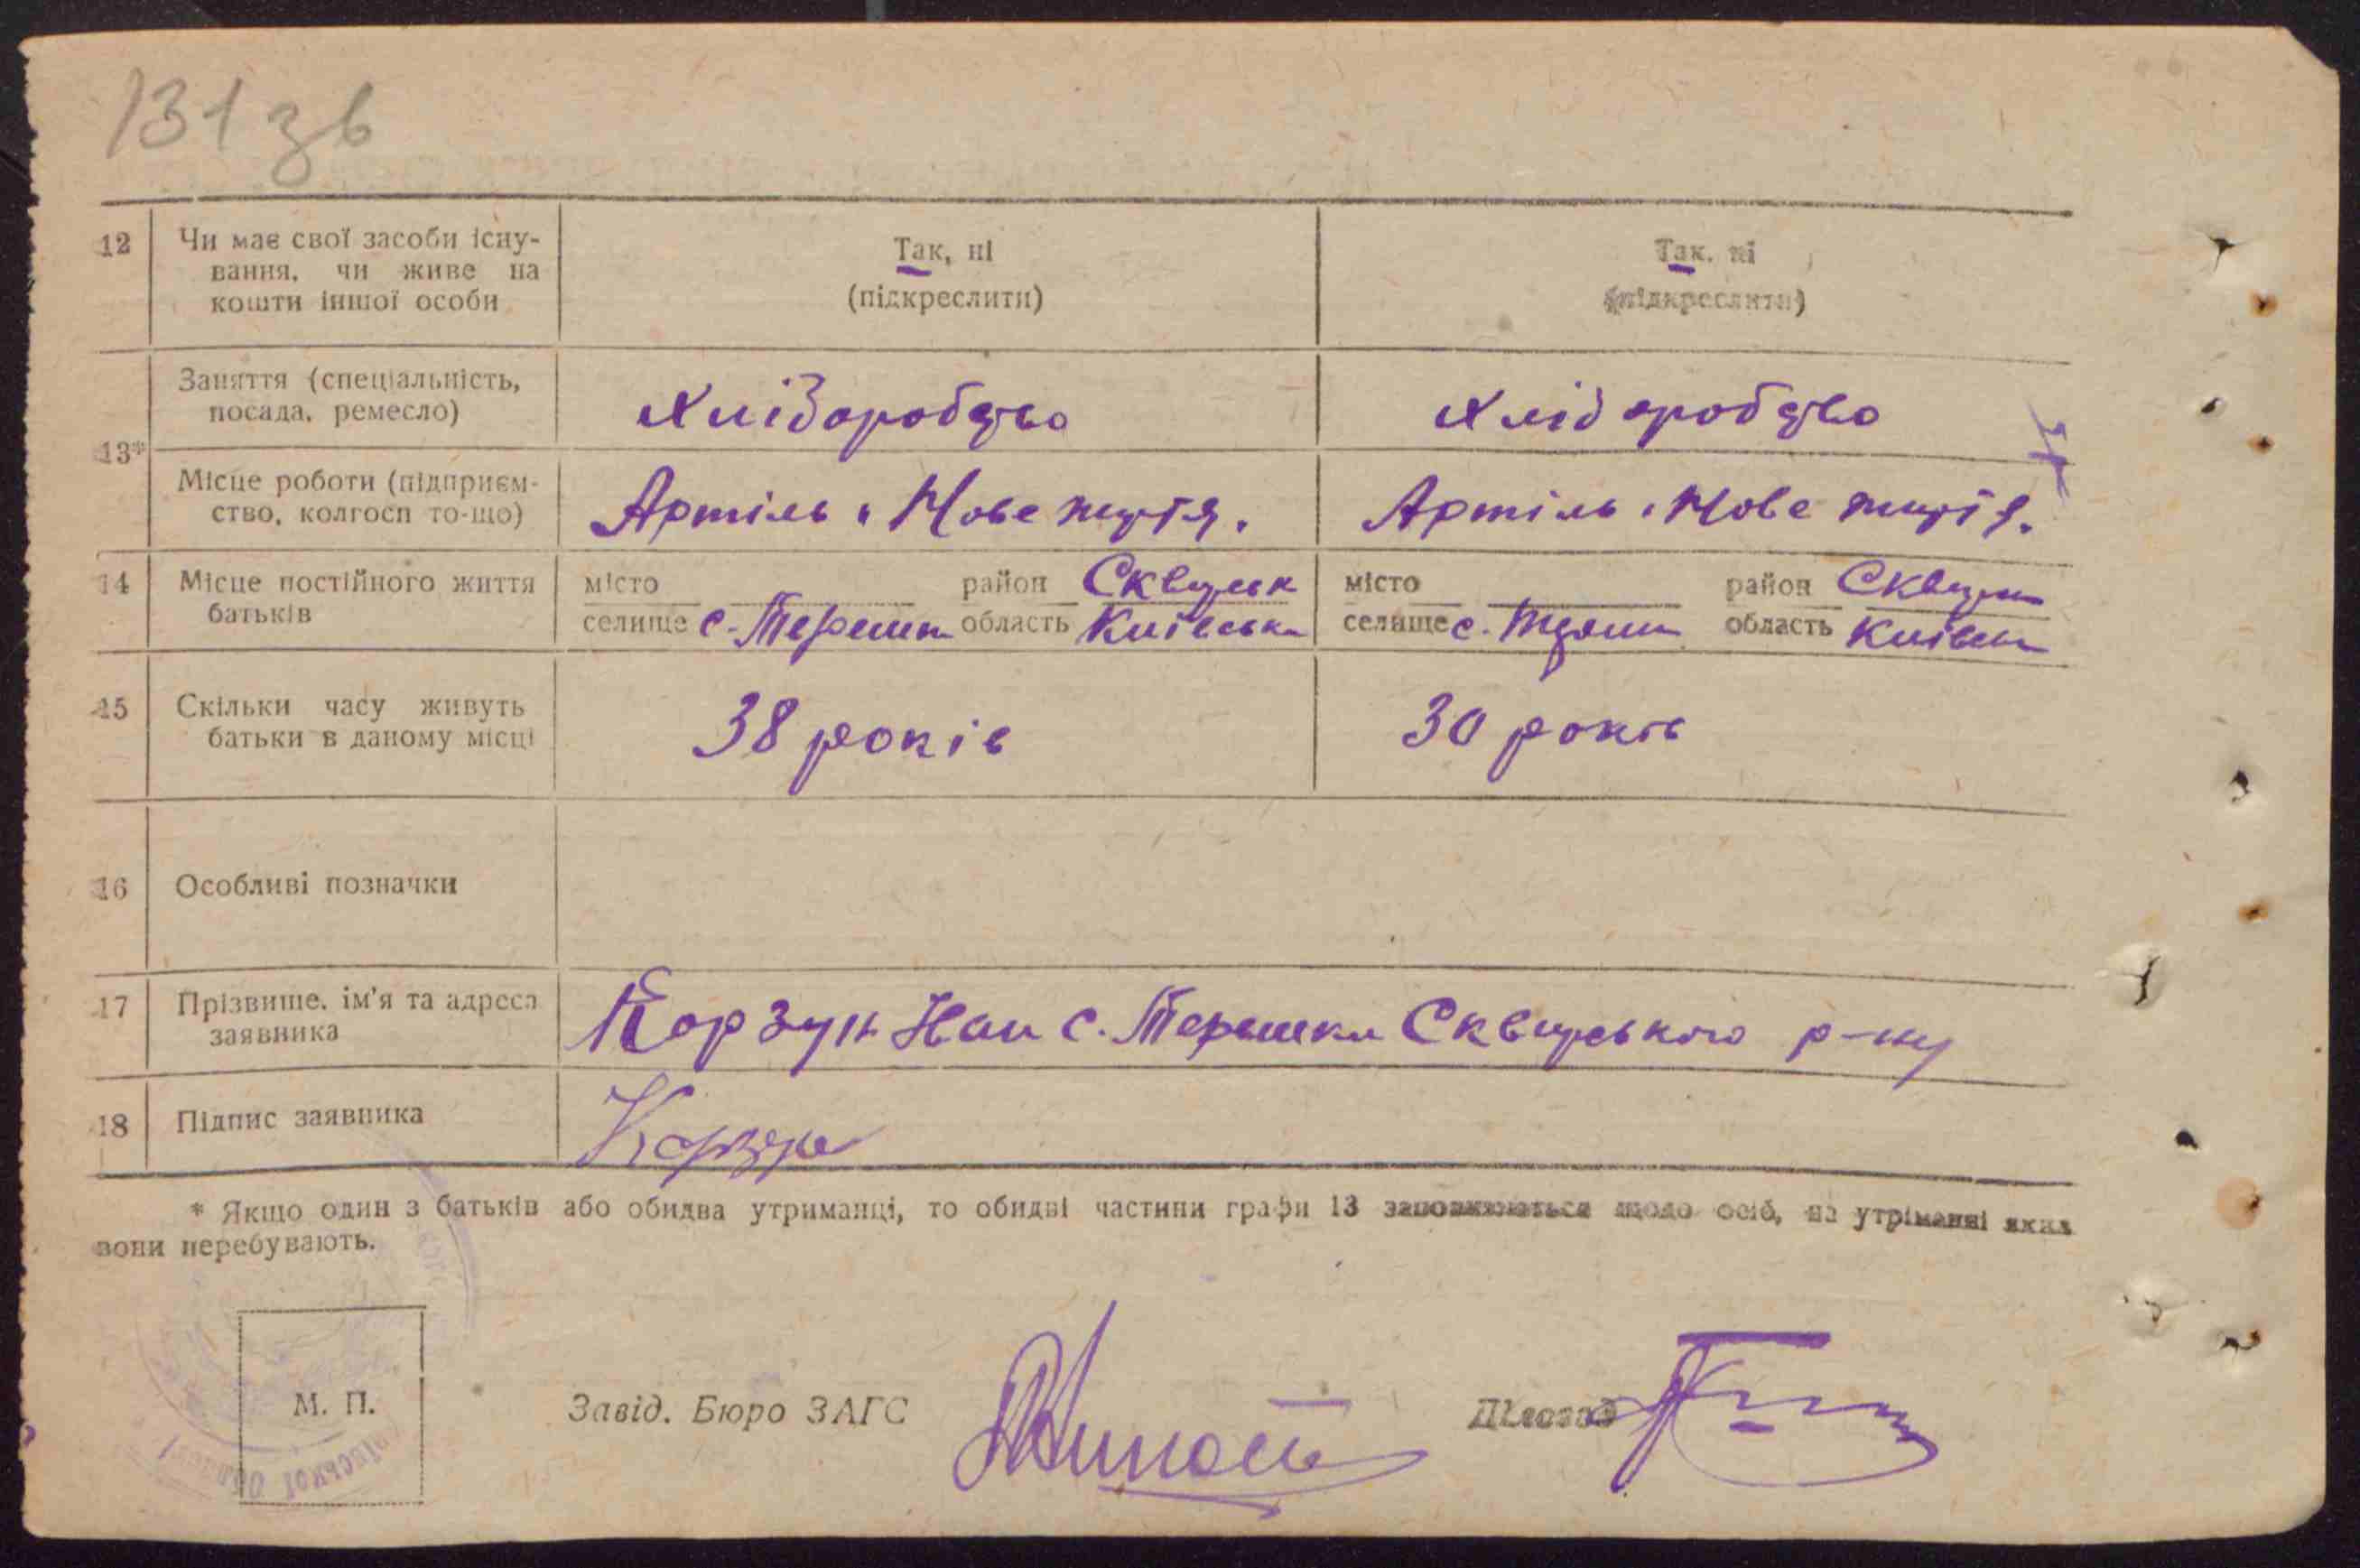 131 зв
12 Чи має свої засоби існу- Так, ні Так. ні
вання, чи живе на
кошти іншої особи (підкреслити) (підкреслити)
Заняття (спеціальність, Хліборобство Хліборобство
посада, ремесло)
13*
Місце роботи (підприєм- Артіль "Нове життя. Артіль "Нове життя.
ство, колгосп то-що)
14 Місце постійного життя місто район Сквирськ місто район Сквирськ
батьків селище с. Терешки область Київська селище с. область Київськ
15 Скільки часу живуть 38 років 30 років
батьки в даному місці
16 Особливі позначки
17 Прізвище, ім'я та адреса Корзун с. Терешки Сквирського р-ну
заявника
18 Підпис заявника Корзун
* Якщо один з батьків або обидва утриманці, то обидві частини графи 13 заповнюються щодо осіб, на утріманні яких
вони перебувають.
М. П. Завід. Бюро ЗАГС Діловод